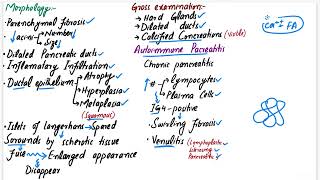 Morphology:-
→ Parenchymal fibrosis
↓ acini → Number
Size
→ Dilated Pancreatic ducts
→ Inflammatory Infiltration
→ Ductal epithelium → Atrophy
Hyperplasia
Metaplasia
(Squamous)
→ Islets of langerhans → Spared
Sorounds by sclerotic tissue
Fuse → Enlarged appearance
Disappear
Gross examination:-
→ Hard Glands
→ Dilated ducts
→ Calcified Concretions (visible)
Autoimmune Pancreatitis
Chronic pancreatitis
↑# → Lymphocytes
Plasma Cells
IG4-positive
→ Swirling fibrosis
→ Venulitis (Lymphoplasmacytic
sclerosing
Pancreatitis)
FA